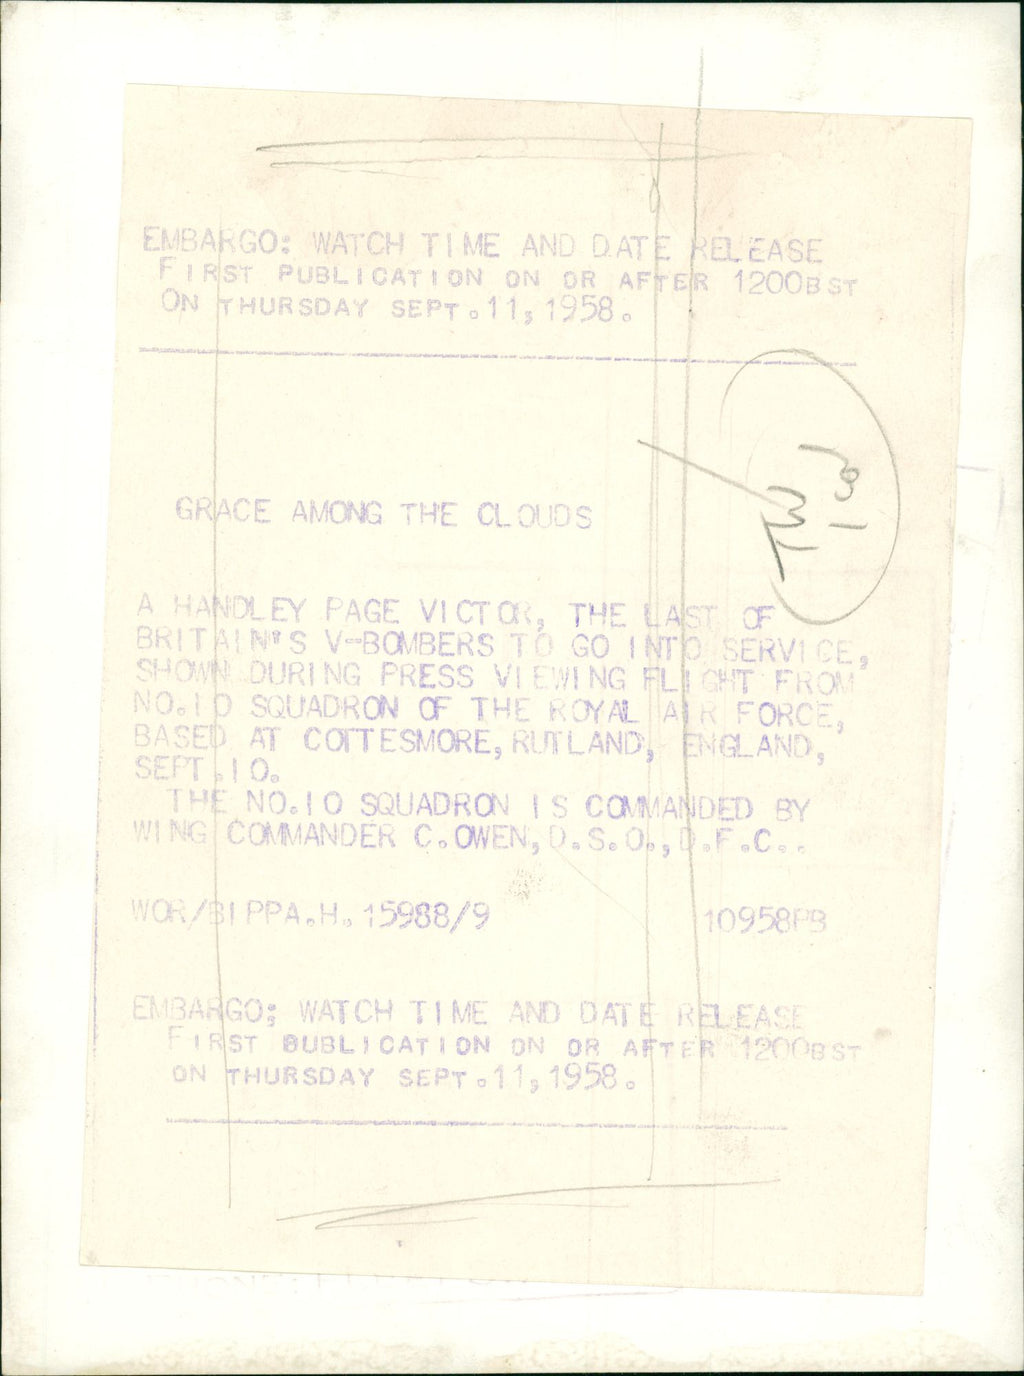 EMBARGO: WATCH TIME AND DATE RELEASE
FIRST PUBLICATION ON OR AFTER 1200BST
ON THURSDAY SEPT.11,1958.
GRACE AMONG THE CLOUDS
A HANDLEY PAGE VICTOR, THE LAST OF
BRITAIN'S V-BOMBERS TO GO INTO SERVICE,
SHOWN DURING PRESS VIEWING FLIGHT FROM
NO.10 SQUADRON OF THE ROYAL AIR FORCE,
BASED AT COTTESMORE, RUTLAND, ENGLAND,
SEPT.10.
THE NO.10 SQUADRON IS COMMANDED BY
WING COMMANDER C.OWEN, D.S.O., D.F.C..
WOR/BIPPA.H. 15988/9 10958PB
EMBARGO: WATCH TIME AND DATE RELEASE
FIRST BUBLICATION ON OR AFTER 1200BST
ON THURSDAY SEPT.11,1958.